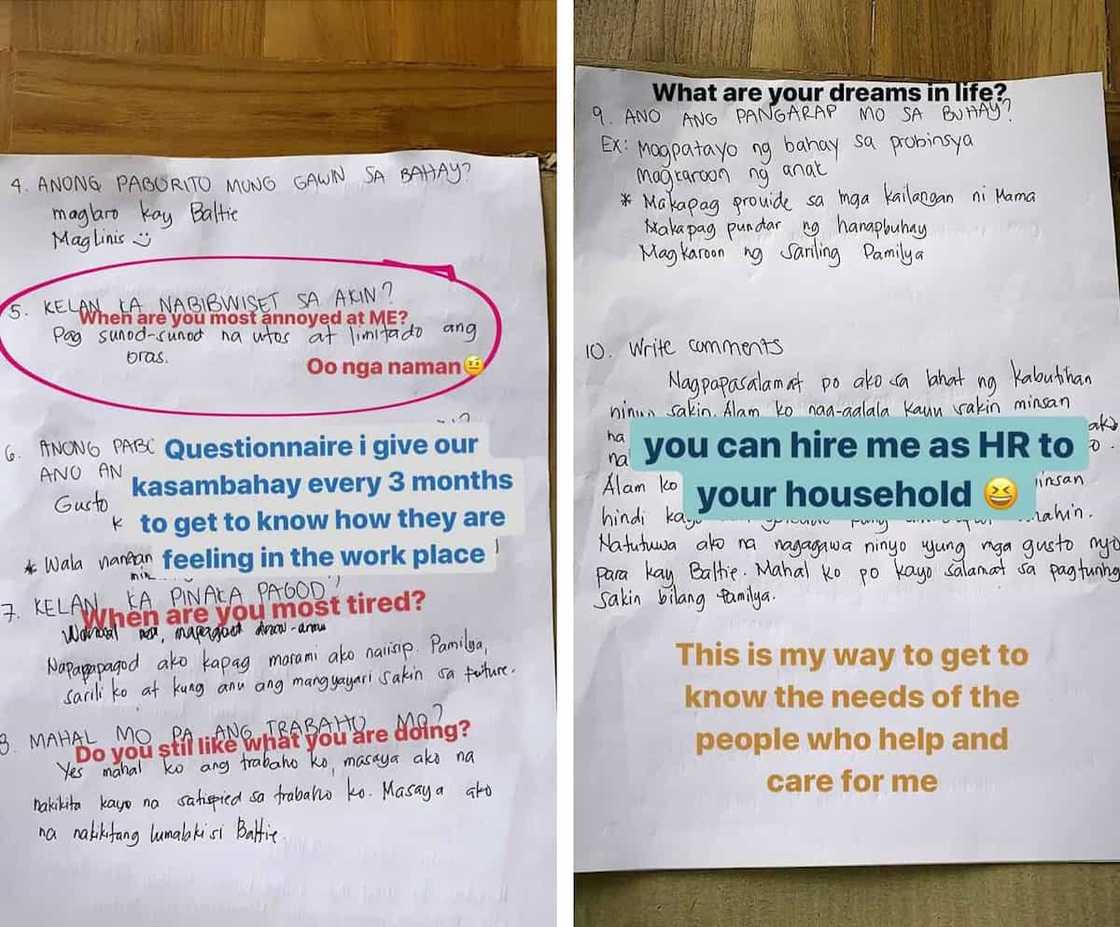 4. ANONG PABORITO MUNG GAWIN SA BAHAY?
maglaro kay Baltie
Maglinis
5. KELAN KA NABIBWISET SA AKIN?
When are you most annoyed at ME?
Pag sunod-sunod na utos at limitado ang
oras.
Oo nga naman🤨
6. ANONG
ANO AN
Gusto
Questionnaire i give our
kasambahay every 3 months
to get to know how they are
feeling in the work place
* Wala naman
7. KELAN KA PINAKA PAGOD?
When are you most tired?
Napapapagod ako kapag marami ako naiisip. Pamilya,
sarili ko at kung anu ang mangyayari sakin sa future.
8. MAHAL MO PA ANG TRABAHO MO?
Do you stil like what you are doing?
Yes mahal ko ang trabaho ko, masaya ako na
nakikita kayo na satispied sa trabaho ko. Masaya ako
na nakikitang lumalaki si Baltie.
What are your dreams in life?
9. ANO ANG PANGARAP MO SA BUHAY?
Ex: Magpatayo ng bahay sa probinsya
magkaroon ng anak
* Makapag provide sa mga kailangan ni Mama
Makapag pundar ng hanapbuhay
Magkaroon ng sariling Pamilya
10. Write comments
Nagpapasalamat po ako sa lahat ng kabutihan
ninyo sakin. Alam ko nag-aalala kayo sakin minsan
ha
na
Alam ko
hindi
you can hire me as HR to
your household 😆
Natutuwa ako na nagagawa ninyo yung mga gusto nyo
para kay Baltie. Mahal ko po kayo salamat sa pagturing
sakin bilang Pamilya.
This is my way to get to
know the needs of the
people who help and
care for me